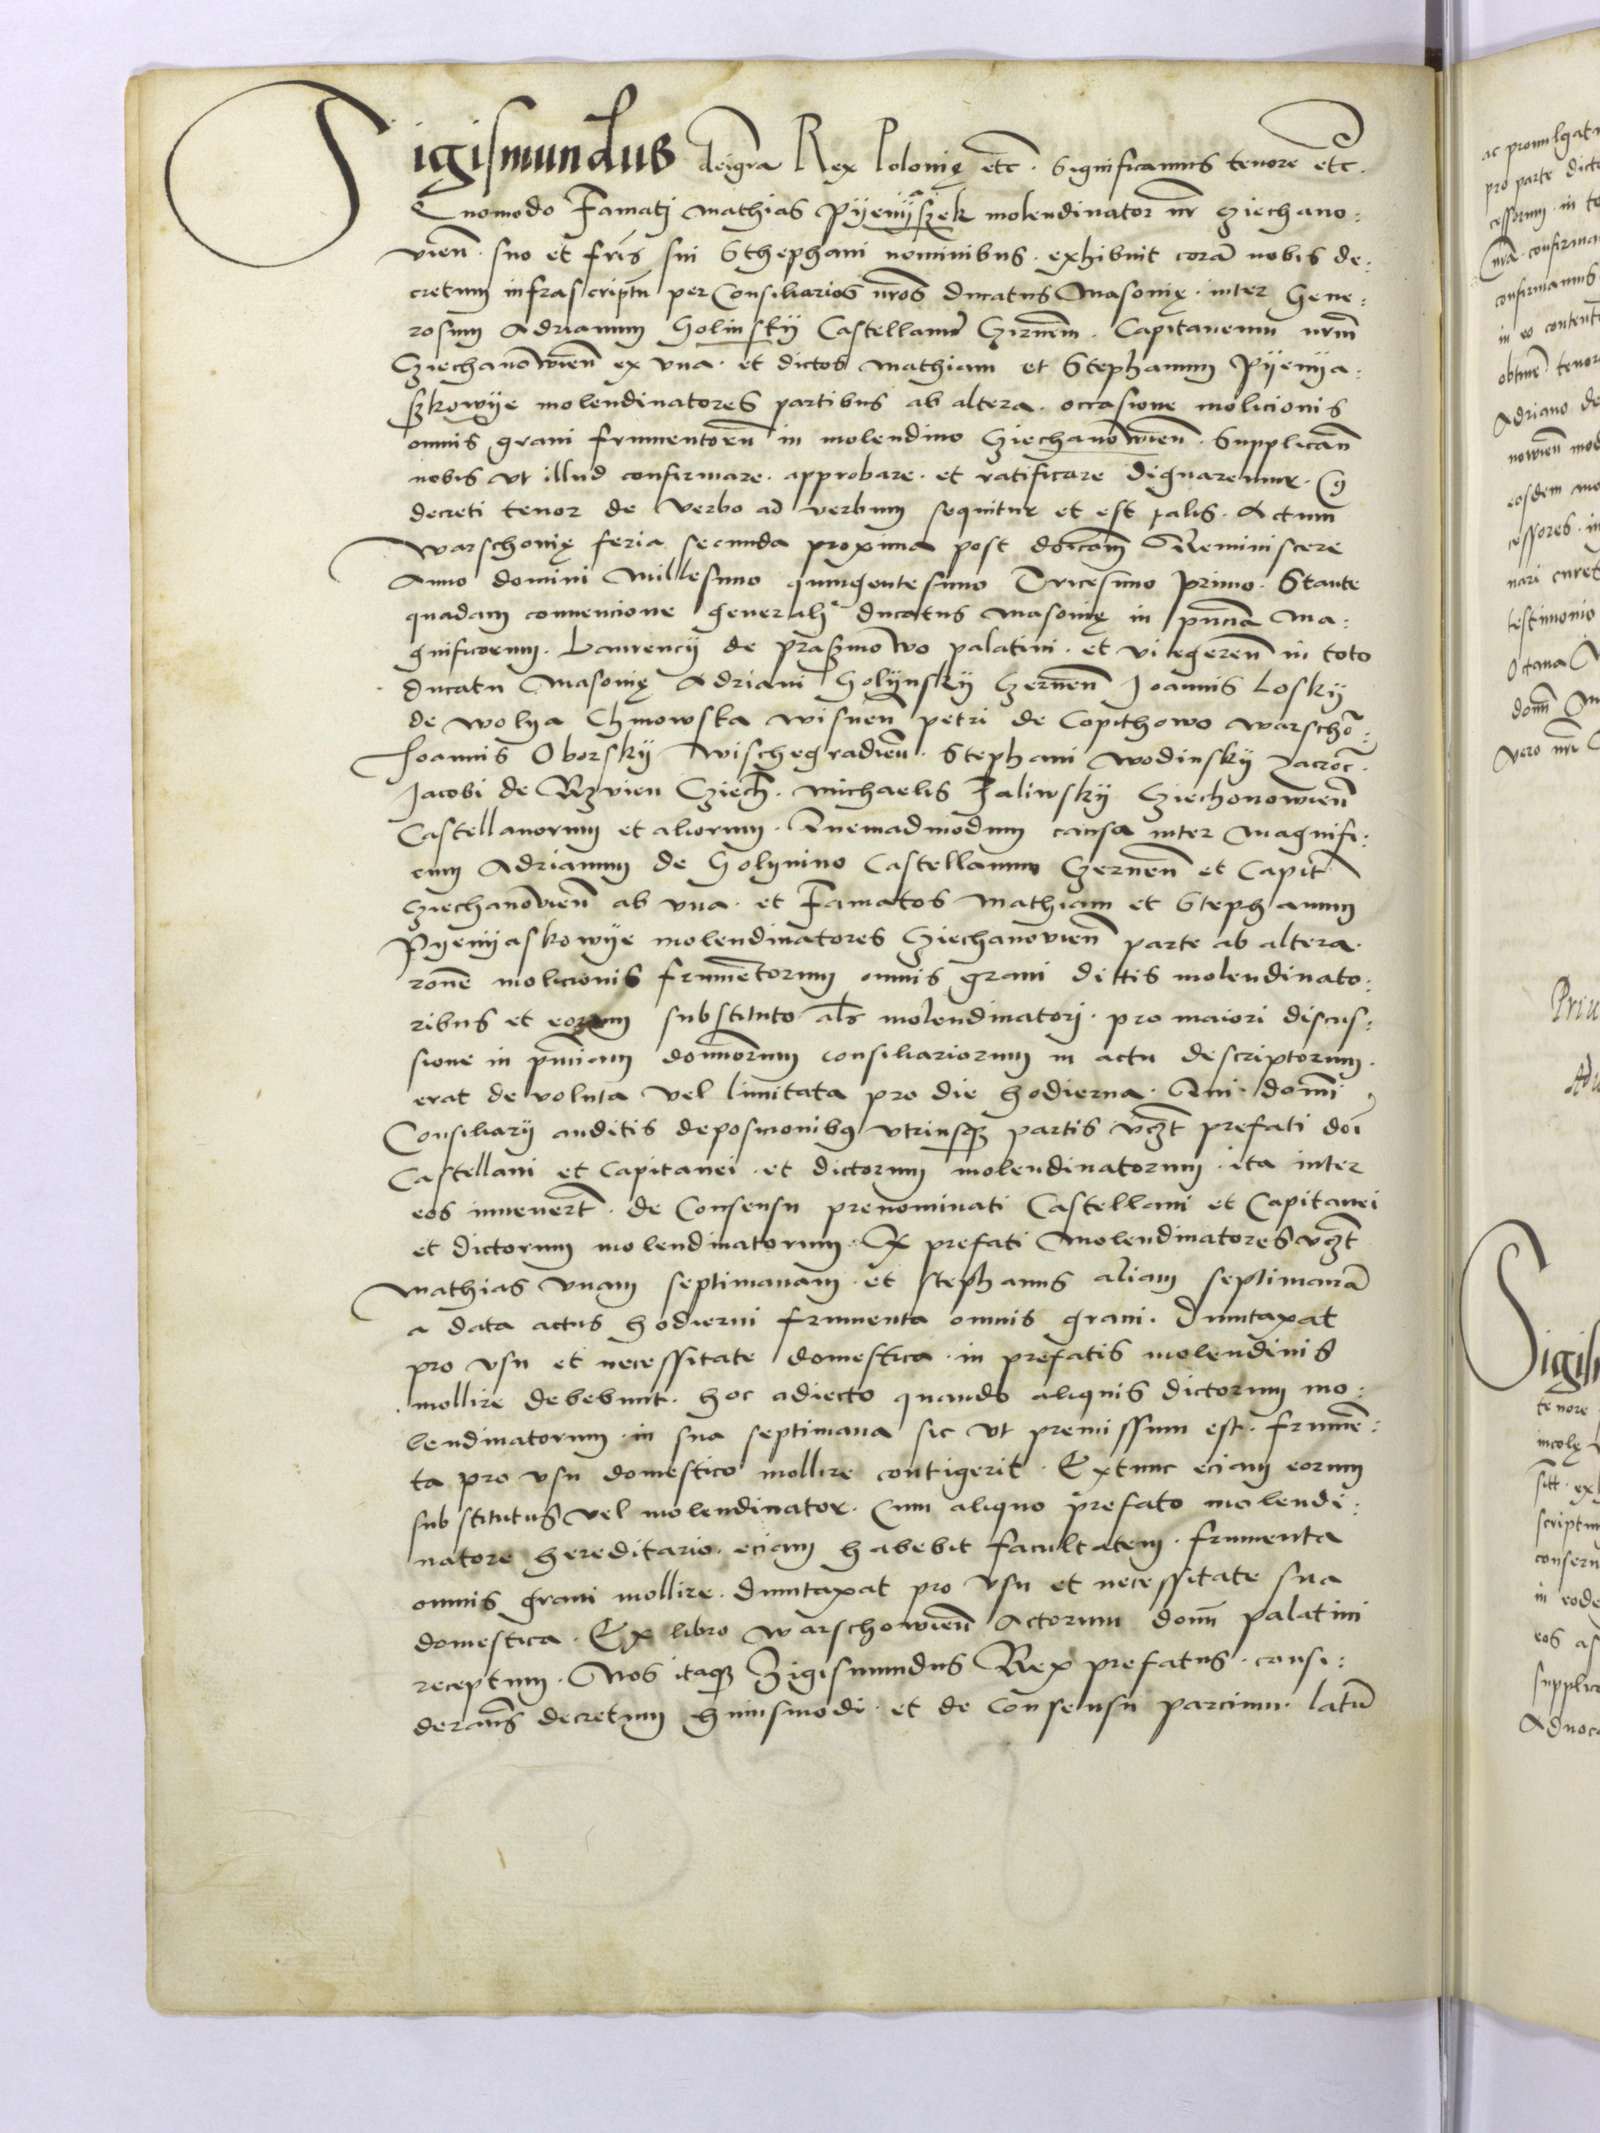 Sigismundus dei gra Rex Polonię etc. Significamus tenore etc.
Quomodo Famatj Mathias Pyenyąszek molendinator nr Cziechano:
vien. suo et fris sui Sthephani nominibus. exhibuit corā nobis de:
cretum infrascriptū per Consiliarios nros ducatus Masonię. inter Gene:
rosum Adrianum Golinskij Castellanū Czirneń. Capitaneum nrm
Cziechanowień ex vna. et dictos Mathiam et Stephanum Pyenya:
szkowye molendinatores partibus ab altera. occasione molicionis
omnis grani frumentorū in molendino Cziechanowień. Supplicań
nobis vt illud confirmare. approbare. et ratificare dignaremur. Cuj9
decreti tenor de verbo ad verbum sequitur et est talis. Actum
Warschonię feria secunda proxima post dnicam Reminiscere
Anno domini Millesimo quingentesimo Tricesimo primo. Stante
quadam convencione generali ducatus Masonię in pntia Ma:
gnificorum. Laurencij de Praszmowo palatini. et vi legereń in toto
ducatu Masonię Adriani Golynskij Czerneń Joannis Loskij
de Wolya Chmowska Wisneń Petri de Copithowo Warscho:
Joannis Oborskij Wischegradień. Stephani Wodinskij Zacroc.
Jacobi de Rzvien Cziech. Michaelis Zaliwskij Cziechonowień
Castellanorum et aliorum. Quemadmodum causa inter Magnifi:
cum Adrianum de Golynino Castellanum Czerneń et Capit
Cziechanovień ab vna. et Famatos Mathiam et Stephanum
Pyenyaskowye molendinatores Cziechanovień parte ab altera.
rone molicionis frumentorum omnis grani dictis molendinato:
ribus et eorum substituto als molendinatorj. pro maiori discus:
sione in pntiam dominorum consiliariorum in actu descriptorum.
erat devoluta vel limitata pro die hodierna. Qui. domini
Consiliarij auditis deposicionibus vtriusque partis vczt prefati doi
Castellani et Capitanei. et dictorum molendinatorum. ita inter
eos invenert. de Consensu prenominati Castellani et Capitanei
et dictorum molendinatorum. Qz prefati Molendinatores vczt
Mathias vnam septimanam. et Stephanus aliam septimanā
a data actus hodierni frumenta omnis grani. Dumtaxat
pro vsu et necessitate domestica. in prefatis molendinis
mollire debebunt. hoc adiecto quando aliquis dictorum mo:
lendinatorum. in sua septimana sic vt premissum est. frumē:
ta pro vsu domestico mollire contigerit. Extunc eciam eorum
substitutus vel molendinator. Cum aliquo prefato molendi:
natore hereditario. eciam habebit facultatem. frumenta
omnis grani mollire. dumtaxat pro vsu et necessitate sua
domestica. Ex libro Warschowień Actorum domi palatini
receptum. Nos itaque Zigismundus Rex prefatus. consi:
derans decretum huiusmodi. et de consensu parcium. latū
ac promulgat
pro parte dict
cessorum. in to
confirma
confirmamus
in eo content
obtine tenor
Adriano de
nowień mol
eosdem mo
cessores. in
nari curet
testimonio
Octava
domi
vero nri
Priu
Sigis
tenore
incolę
scriptum
conserv
in eode
eos as
supplic
Advoca